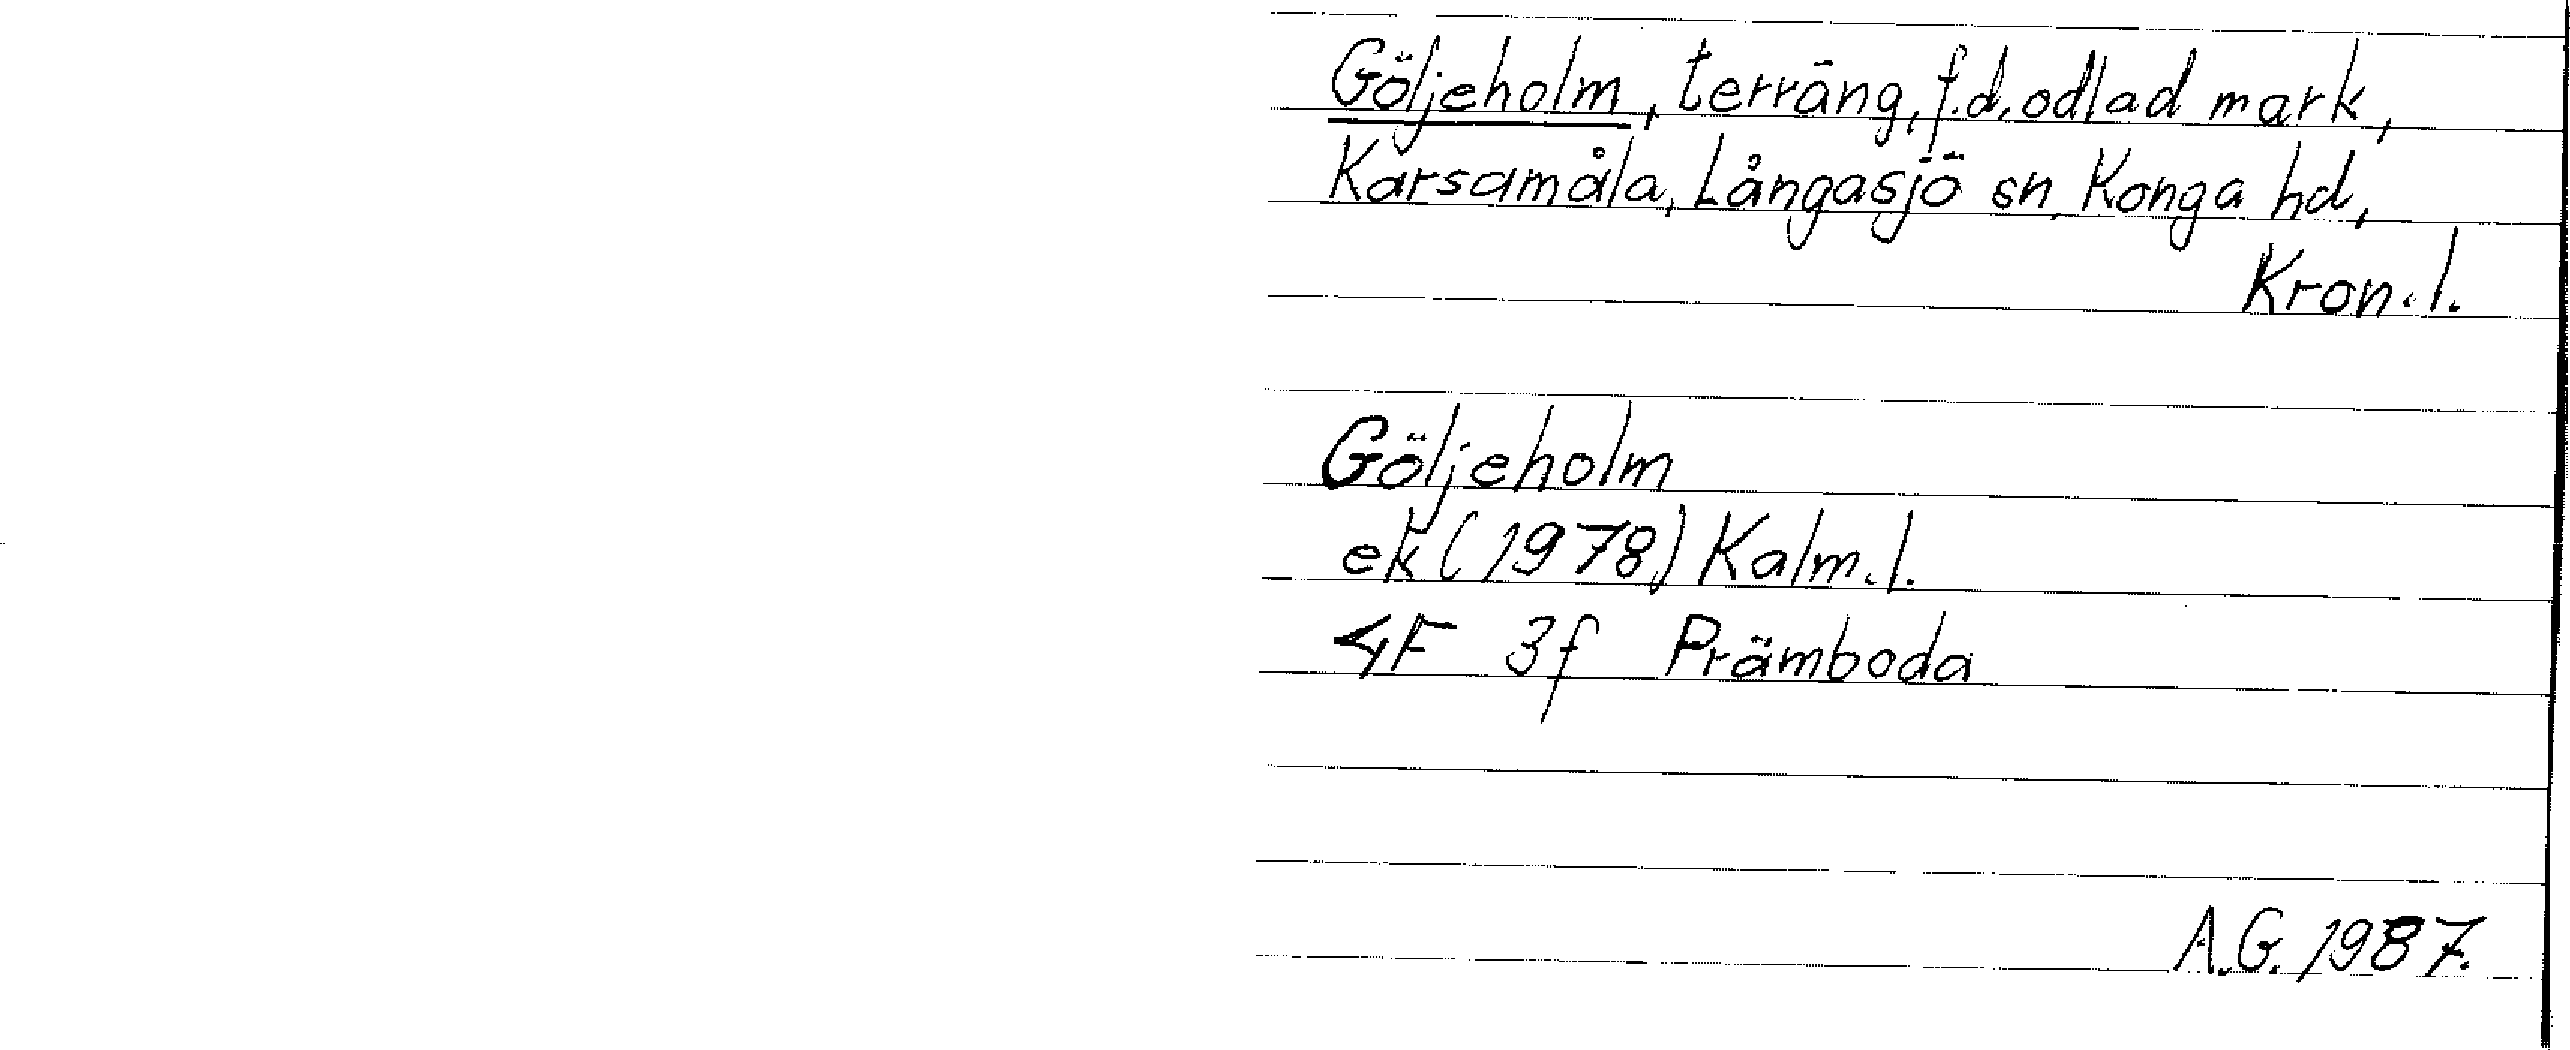 Göljeholm, terräng, f.d. odlad mark,
Karsamåla, Långasjö sn, Konga hd,
Kron. l.
Göljeholm
ek (1978) Kalm. l.
4F 3f Prämboda
A.G. 1987.